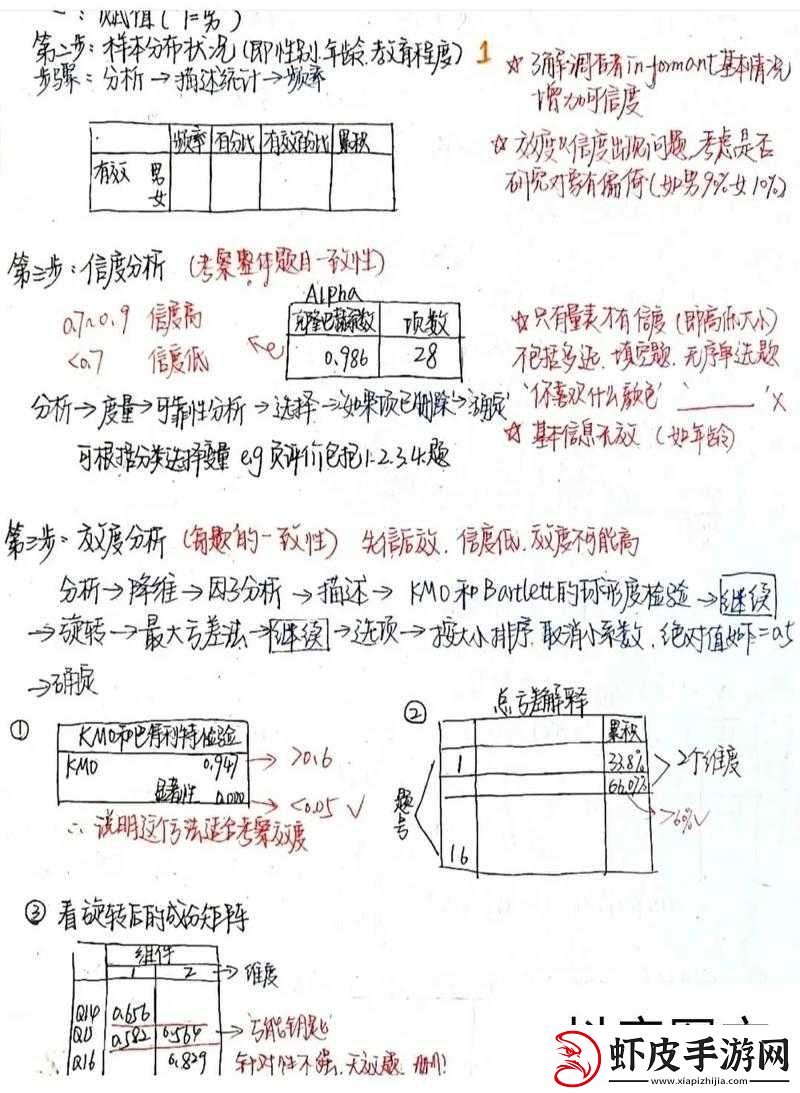 一：赋值（1=男）
第二步：样本分布状况（即性别、年龄、教育程度） 1
步骤：分析→描述统计→频率
☆ 了解调查者informant基本情况
增加可信度
频率 百分比 有效百分比 累积
有效 男
女
☆ 效度、信度出现问题，考虑是否
研究对象有偏倚（如男90%女10%）
第三步：信度分析（考察整体题目一致性）
0.7~0.9 信度高
<0.7 信度低
Alpha
克隆巴赫系数 项数
0.986 28
☆ 只有量表才有信度（即高低大小）
不包括多选、填空题、无序单选题
‘你喜欢什么颜色’ ‘______’ ×
☆ 基本信息无效（如年龄）
分析→度量→可靠性分析→选择→如果项已删除→确定
可根据分类选择变量 e.g 负评价包括1.2.3.4.题
第三步：效度分析（每题的一致性）先信后效，信度低，效度不可能高
分析→降维→因子分析→描述→KMO和Bartlett的球形度检验→继续
→旋转→最大方差法→继续→选项→按大小排序，取消小系数，绝对值如下=0.5
→确定
①
KMO和巴特利特检验
KMO 0.947 → >0.6
显著性 0.000 → <0.05 √
∴说明这个方法适合考察效度
② 总方差解释
累积
1 33.8%
66.0% 2个维度
>60%√
题号
16
③ 看旋转后的成份矩阵
组件
1 2 → 维度
Q14 0.656
Q11 0.582 0.564 → 万能钥匙
Q16 0.829 针对性不强，无效题，删！
虾皮手游网
www.xiapizhijia.com